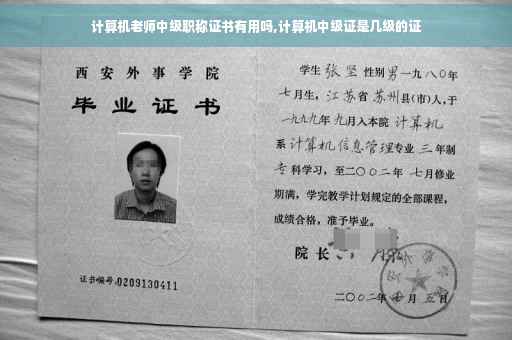 计算机老师中级职称证书有用吗,计算机中级证是几级的证
西安外事学院
毕业证书
证书编号:0209130411
学生 张坚 性别 男 一九八〇年
七月生, 江苏省 苏州 县(市)人, 于
一九九九年 九月入本院 计算机
系 计算机信息管理 专业 三 年制
专科学习, 至二〇〇二年 七月修业
期满, 学完教学计划规定的全部课程,
成绩合格, 准予毕业。
院长
二〇〇二年 七月 五日